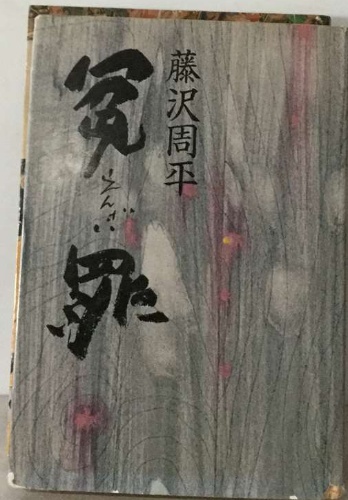 藤沢周平
冤罪
えんざい